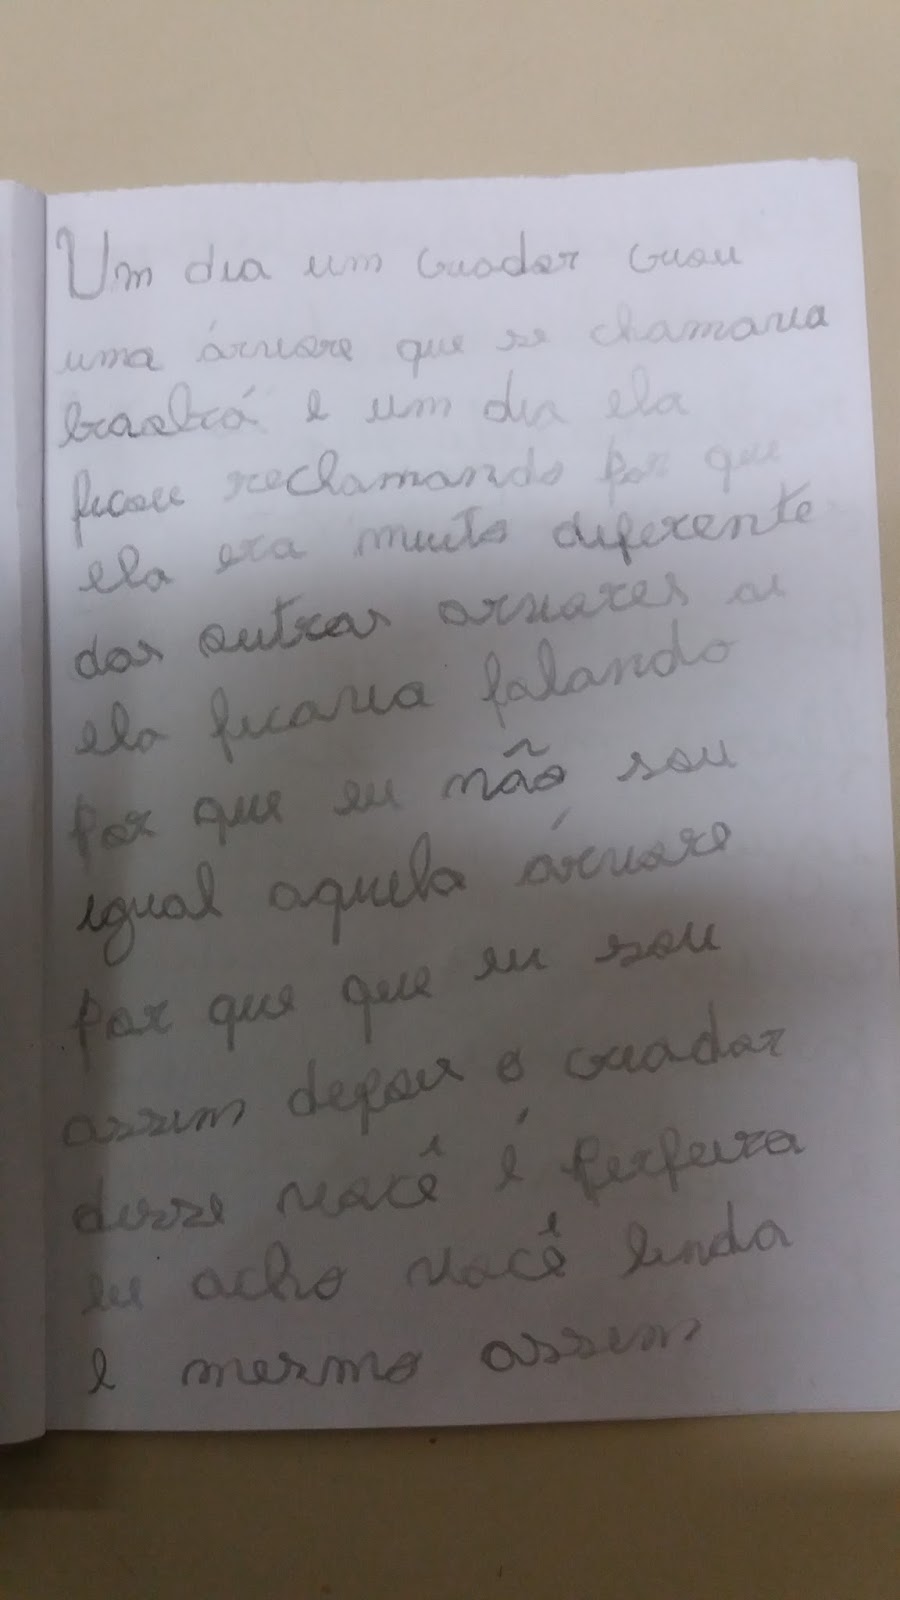 Um dia um criador criou
uma árvore que se chamaria
baobá e um dia ela
ficou reclamando por que
ela era muito diferente
das outras arvores ai
ela ficaria falando
por que eu não sou
igual aquela árvore
por que que eu sou
assim depois o criador
disse você é perfeita
eu acho você linda
e mesmo assim